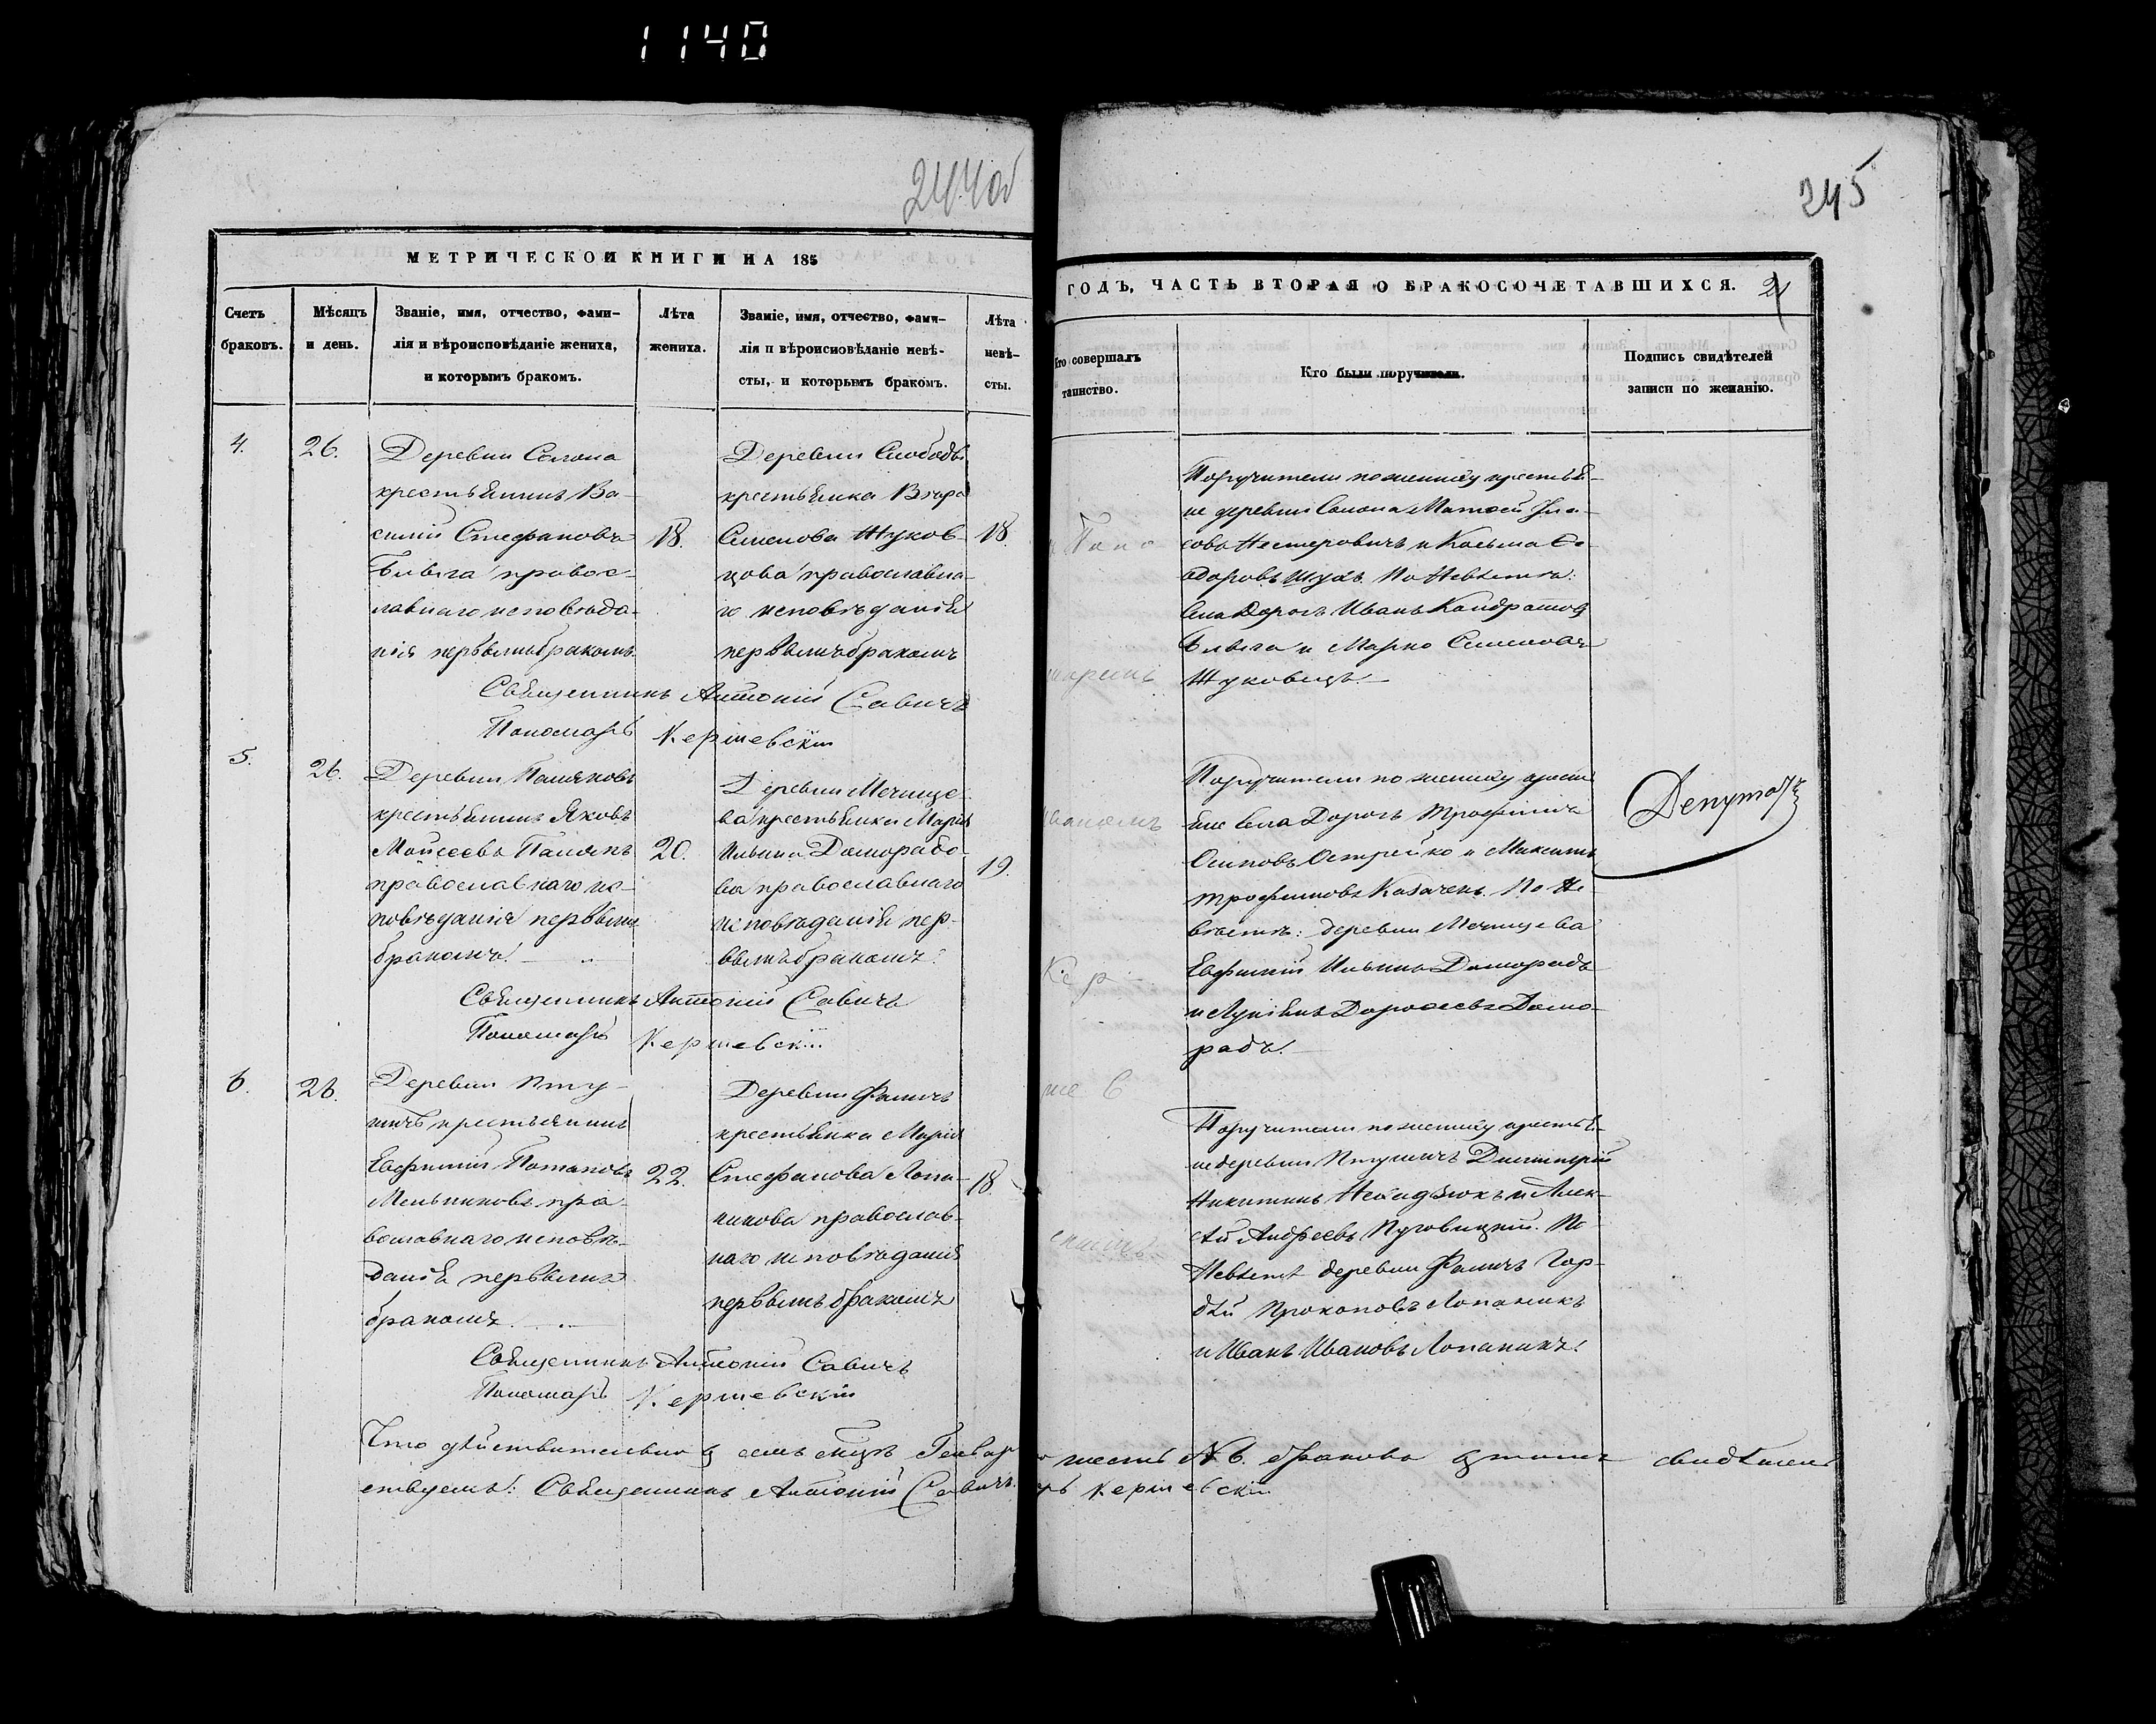 1140
244об
245
МЕТРИЧЕСКОЙ КНИГИ НА 185
ГОДЪ, ЧАСТЬ ВТОРАЯ О БРАКОСОЧЕТАВШИХСЯ.
21
Счетъ
браковъ.
Мѣсяцъ
и день.
Званіе, имя, отчество, фами-
лія и вѣроисповѣданіе жениха,
и которымъ бракомъ.
Лѣта
жениха.
Званіе, имя, отчество, фами-
лія и вѣроисповѣданіе невѣ-
сты, и которымъ бракомъ.
Лѣта
невѣ-
сты.
Кто совершалъ
таинство.
Кто были поручители.
Подпись свидѣтелей
записи по желанію.
4.
26.
Деревни Солона
крестьянинъ Ва-
силій Стефановъ
правос-
лавнаго исповѣда-
нія первымъ бракомъ.
18.
Деревни Слободы
крестьянка
Семенова Жуков-
цова православна-
го исповѣданія
первымъ бракомъ
18.
Поручители по жениху крестья-
не деревни Солона Матѳей
Нестеровичъ и Козьма Ѳе-
одоровъ По Невѣстѣ:
Села Дорогъ Иванъ Кондратовъ
и Марко Семеновъ
Жуковецъ.
Священникъ Антоній Савичъ
Пономарь Кершевскій
5.
26.
Деревни
крестьянинъ Яковъ
Моисеевъ
православнаго ис-
повѣданія первымъ
бракомъ.
20.
Деревни Мечище-
ва крестьянка Марія
Ильина Доморадо-
ва православнаго
исповѣданія пер-
вымъ бракомъ.
19.
Кер
Поручители по жениху крестья-
не Села Дорогъ Трофимъ
Осиповъ Острейко и Максимъ
Трофимовъ Казачекъ. По Не-
вѣстѣ: деревни Мечищева
Евфимій Ильинъ Доморадъ
и Лукіянъ Дороѳеевъ Домо-
радъ.
Депутатъ
Священникъ Антоній Савичъ
Пономарь Кершевскій
6.
26.
Деревни Пту-
шичъ крестьянинъ
Евфимій Потаповъ
Мельниковъ пра-
вославнаго исповѣ-
данія первымъ
бракомъ.
22.
Деревни Фаличъ
крестьянка Марія
Стефанова Лопа-
никова православ-
наго исповѣданія
первымъ бракомъ
18.
ше в
скимъ
Поручители по жениху крестья-
не деревни Птушичъ Димитрій
Никитинъ и Алек-
сѣй Андреевъ Пуговицкій. По
Невѣстѣ деревни Фаличъ Гор-
дѣй Прокоповъ Лопаникъ
и Иванъ Ивановъ Лопаникъ.
Священникъ Антоній Савичъ
Пономарь Кершевскій
Что дѣйствительно въ семъ мцѣ Генвар шесть № 6. браковъ въ томъ свидѣтель
ствуемъ: Священникъ Антоній Савичъ. рь Кершевскій